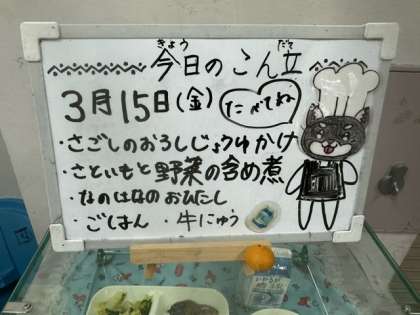 今日のこん立
きょう だて
3月15日(金)
たべてね
・さごしのおろしじょうゆかけ
・さといもと野菜の含め煮
・なのはなのおひたし
・ごはん ・牛にゅう